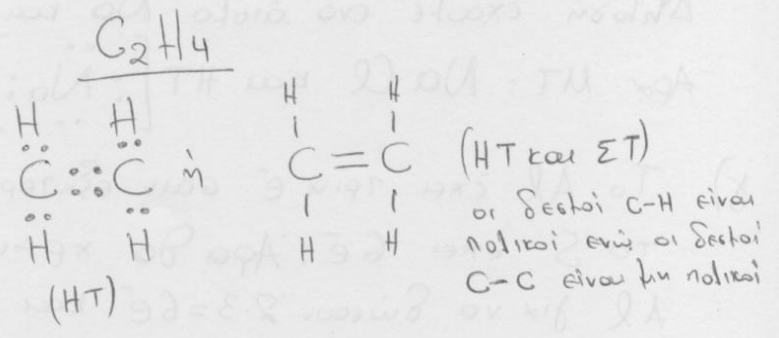 C₂H₄
H H
C::C ή
H H
(ΗΤ)
H H
C=C
H H
(ΗΤ και ΣΤ)
οι δεσμοί C-H είναι
πολικοί ενώ οι δεσμοί
C-C είναι μη πολικοί